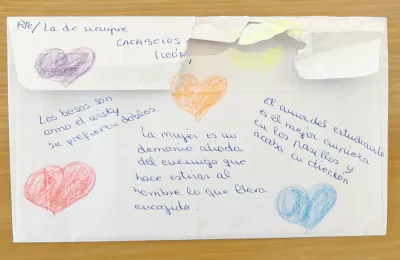 Rte/ La de siempre
CACABELOS
(LEÓN
Los besos son
como el wisky
se prefieren dobles.
La mujer es un
demonio aliada
del enemigo que
hace estirar al
hombre lo que lleva
encogido.
El amor del estudiante
es el mejor empieza
en los pasillos y
acaba en